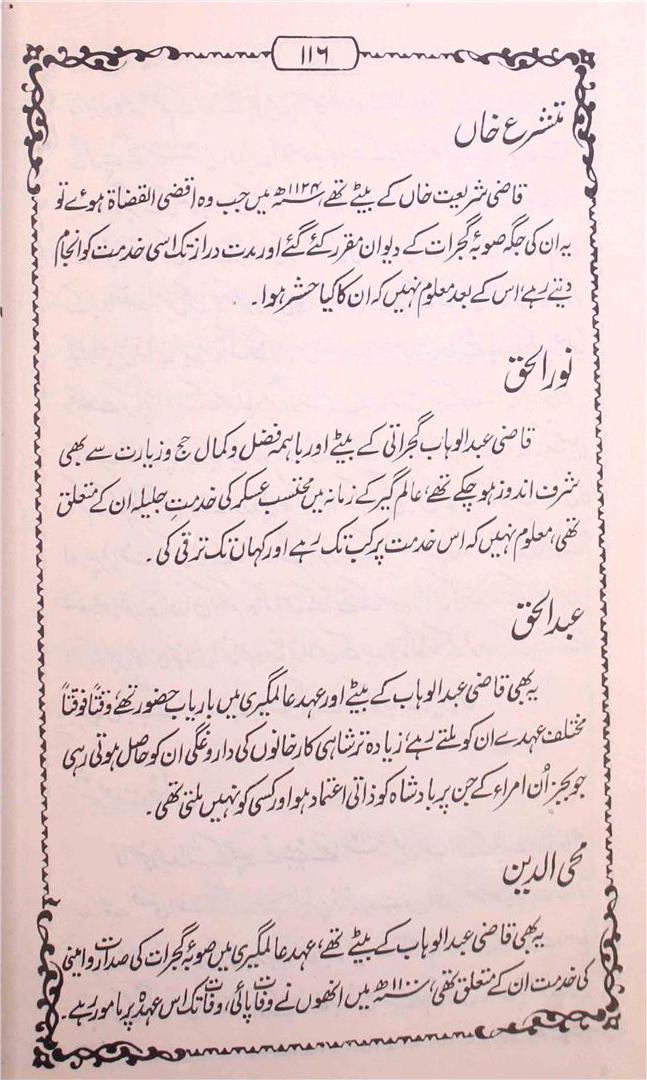 ۱۱۶
متشرع خاں
قاضی شریعت خاں کے بیٹے تھے، ۱۱۲۴ھ میں جب وہ اقضی القضاۃ ہوئے تو
یہ ان کی جگہ صوبۂ گجرات کے دیوان مقرر کئے گئے اور مدت دراز تک اسی خدمت کو انجام
دیتے رہے، اس کے بعد معلوم نہیں کہ ان کا کیا حشر ہوا۔
نور الحق
قاضی عبدالوہاب گجراتی کے بیٹے اور باہمہ فضل و کمال حج و زیارت سے بھی
شرف اندوز ہو چکے تھے، عالم گیر کے زمانہ میں محتسب عسکر کی خدمتِ جلیلہ ان کے متعلق
تھی، معلوم نہیں کہ اس خدمت پر کب تک رہے اور کہاں تک ترقی کی۔
عبدالحق
یہ بھی قاضی عبدالوہاب کے بیٹے اور عہد عالمگیری میں باریاب حضور تھے، وقتاً فوقتاً
مختلف عہدے ان کو ملتے رہے، زیادہ تر شاہی کارخانوں کی داروغگی ان کو حاصل ہوتی رہی
جو بجز اُن امراء کے جن پر بادشاہ کو ذاتی اعتماد ہو اور کسی کو نہیں ملتی تھی۔
محی الدین
یہ بھی قاضی عبدالوہاب کے بیٹے تھے، عہد عالمگیری میں صوبۂ گجرات کی صدارت و امینی
کی خدمت ان کے متعلق تھی، ۱۱۰۰ھ میں انھوں نے وفات پائی، وفات تک اس عہدہ پر مامور رہے۔